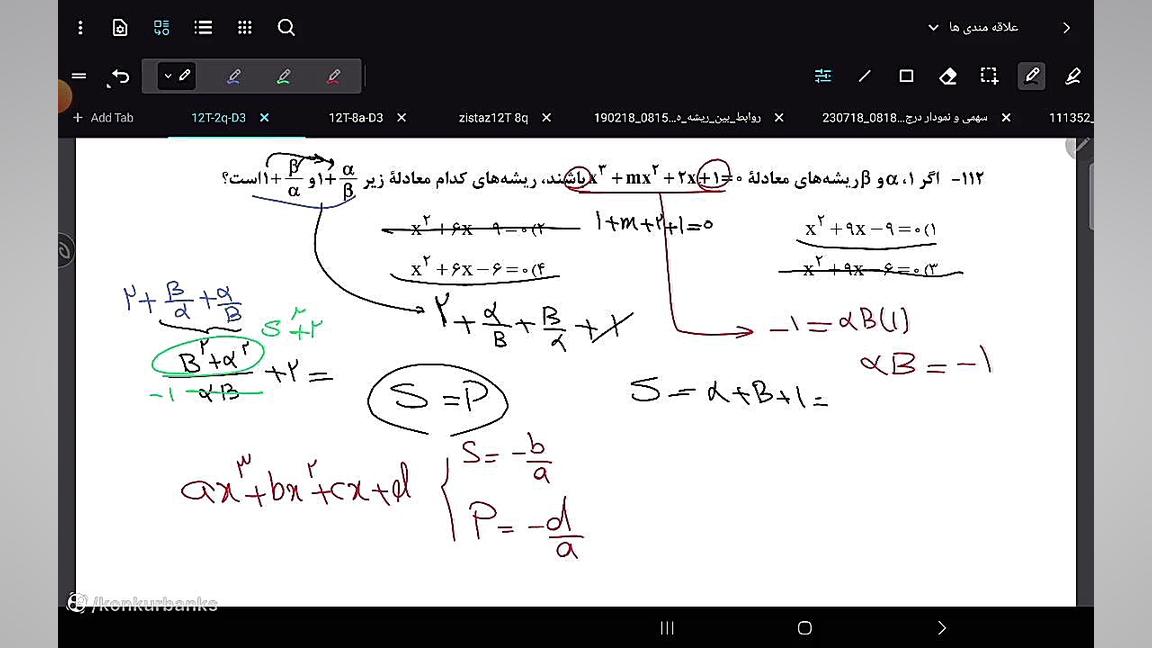 علاقه مندی ها
+ Add Tab
12T-2q-D3 ×
12T-8a-D3 ×
zistaz12T 8q ×
190218_0815...روابط_بین_ریشه_ه ×
230718_0818...سهمی و نمودار درج ×
111352_
۱۱۲- اگر ۱، α و β ریشه‌های معادلهٔ x³ + mx² + ۲x + ۱ = ۰ باشند، ریشه‌های کدام معادلهٔ زیر α/β + ۱ و β/α + ۱ است؟
x² + ۹x − ۹ = ۰ (۱
x² + ۶x − ۹ = ۰ (۲
x² + ۹x − ۶ = ۰ (۳
x² + ۶x − ۶ = ۰ (۴
۱ + m + ۲ + ۱ = ۰
۲ + β/α + α/β
S² + ۲
(β² + α²)/αβ + ۲ =
−۱
۲ + α/β + β/α + ۱
−۱ = αβ(۱)
αβ = −۱
S = P
S = α + β + ۱ =
ax³ + bx² + cx + d
S = −b/a
P = −d/a
/konkurbanks